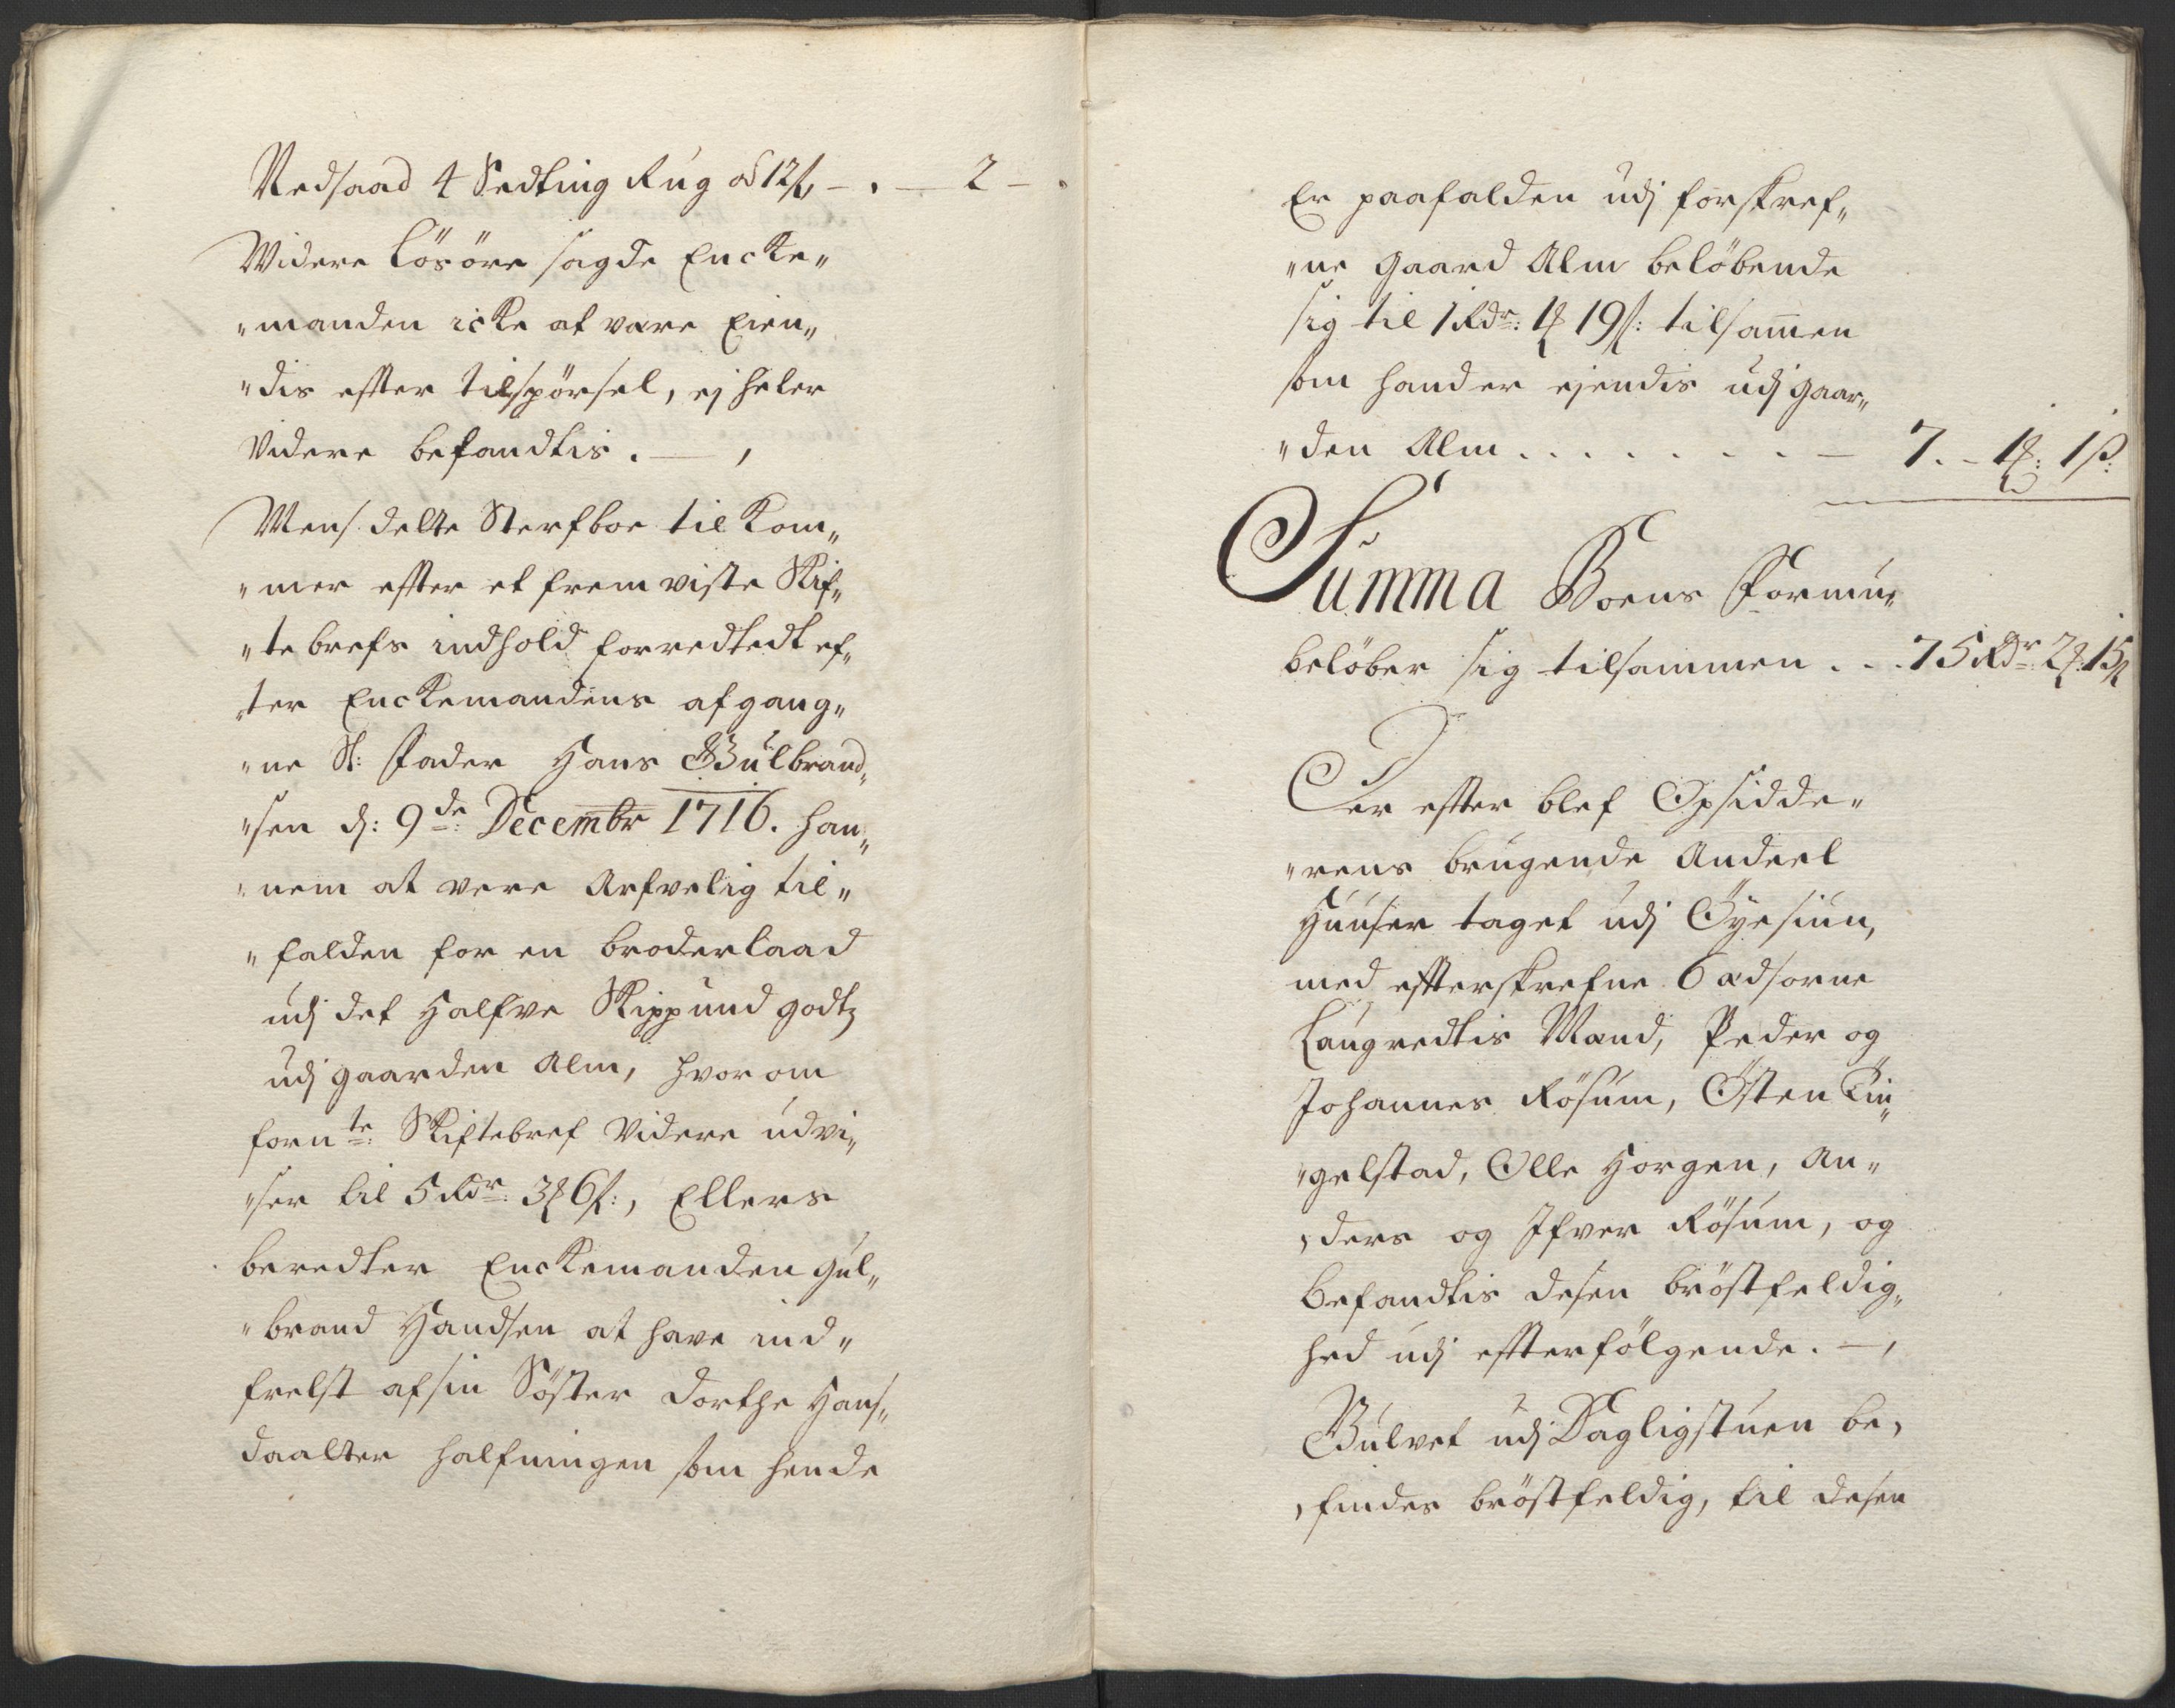 Nedsaad 4 Sedting Rug od 12ß, - . — 2 - .
Widere Lösöre sagde Encke„
„manden icke at være Eien„
„dis efter tilspörsel, ej heler
Videre befandtis. — ,
Mens dette Sterfboe til kom„
„mer efter et frem viste Skif„
„te brefs indhold forredtedt ef„
„ter Enckemandens afgang„
„ne Sl: Fader Hans Gulbrand„
„sen d: 9de: Decembr 1716. han„
„nem at vere Arfvelig til„
„falden for en broderlaad
udj det Halfve Skippund godtz
udj gaarden Alm, hvor om
fornte: Skiftebref Videre udvi„
„ser til 5 Rdr: 3 ꝳ 6ß:, Ellers
beredter Enckemanden Gul„
„brand Handsen at have ind„
frelst af sin Söster Dorthe Hans„
daatter halfningen som hende
Er paafalden udj forskref„
„ne gaard Alm belöbende
sig til 1 Rdr: 1 ꝳ 19ß: tilsam̅en
som hand er ejendis udj gaar„
„den Alm . . . . . . . — 7. - 1 ꝳ: 1ß:
Summa Boens Formue
belöber sig tilsammen . . . 75 Rdr: 2 ꝳ: 15ß
Der efter blef Opsidde„
„rens brugende Andeel
Huuser taget udj Öyesiun,
med efterskrefne 6 ædsorne
Laugredtis Mænd, Peder og
Johannes Rösum, Östen Rin„
„gelstad, Olle Horgen, An„
„ders og Ifver Rösum, og
befandtis desen bröstfeldig„
hed udj efterfölgende. — ,
Gulvet udj Dagligstuen be„
„findes bröstfeldig, til desen